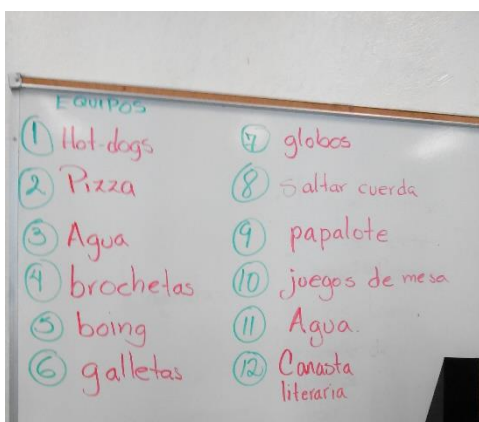 EQUIPOS
1 Hot-dogs
2 Pizza
3 Agua
4 brochetas
5 boing
6 galletas
7 globos
8 saltar cuerda
9 papalote
10 juegos de mesa
11 Agua.
12 Canasta
literaria